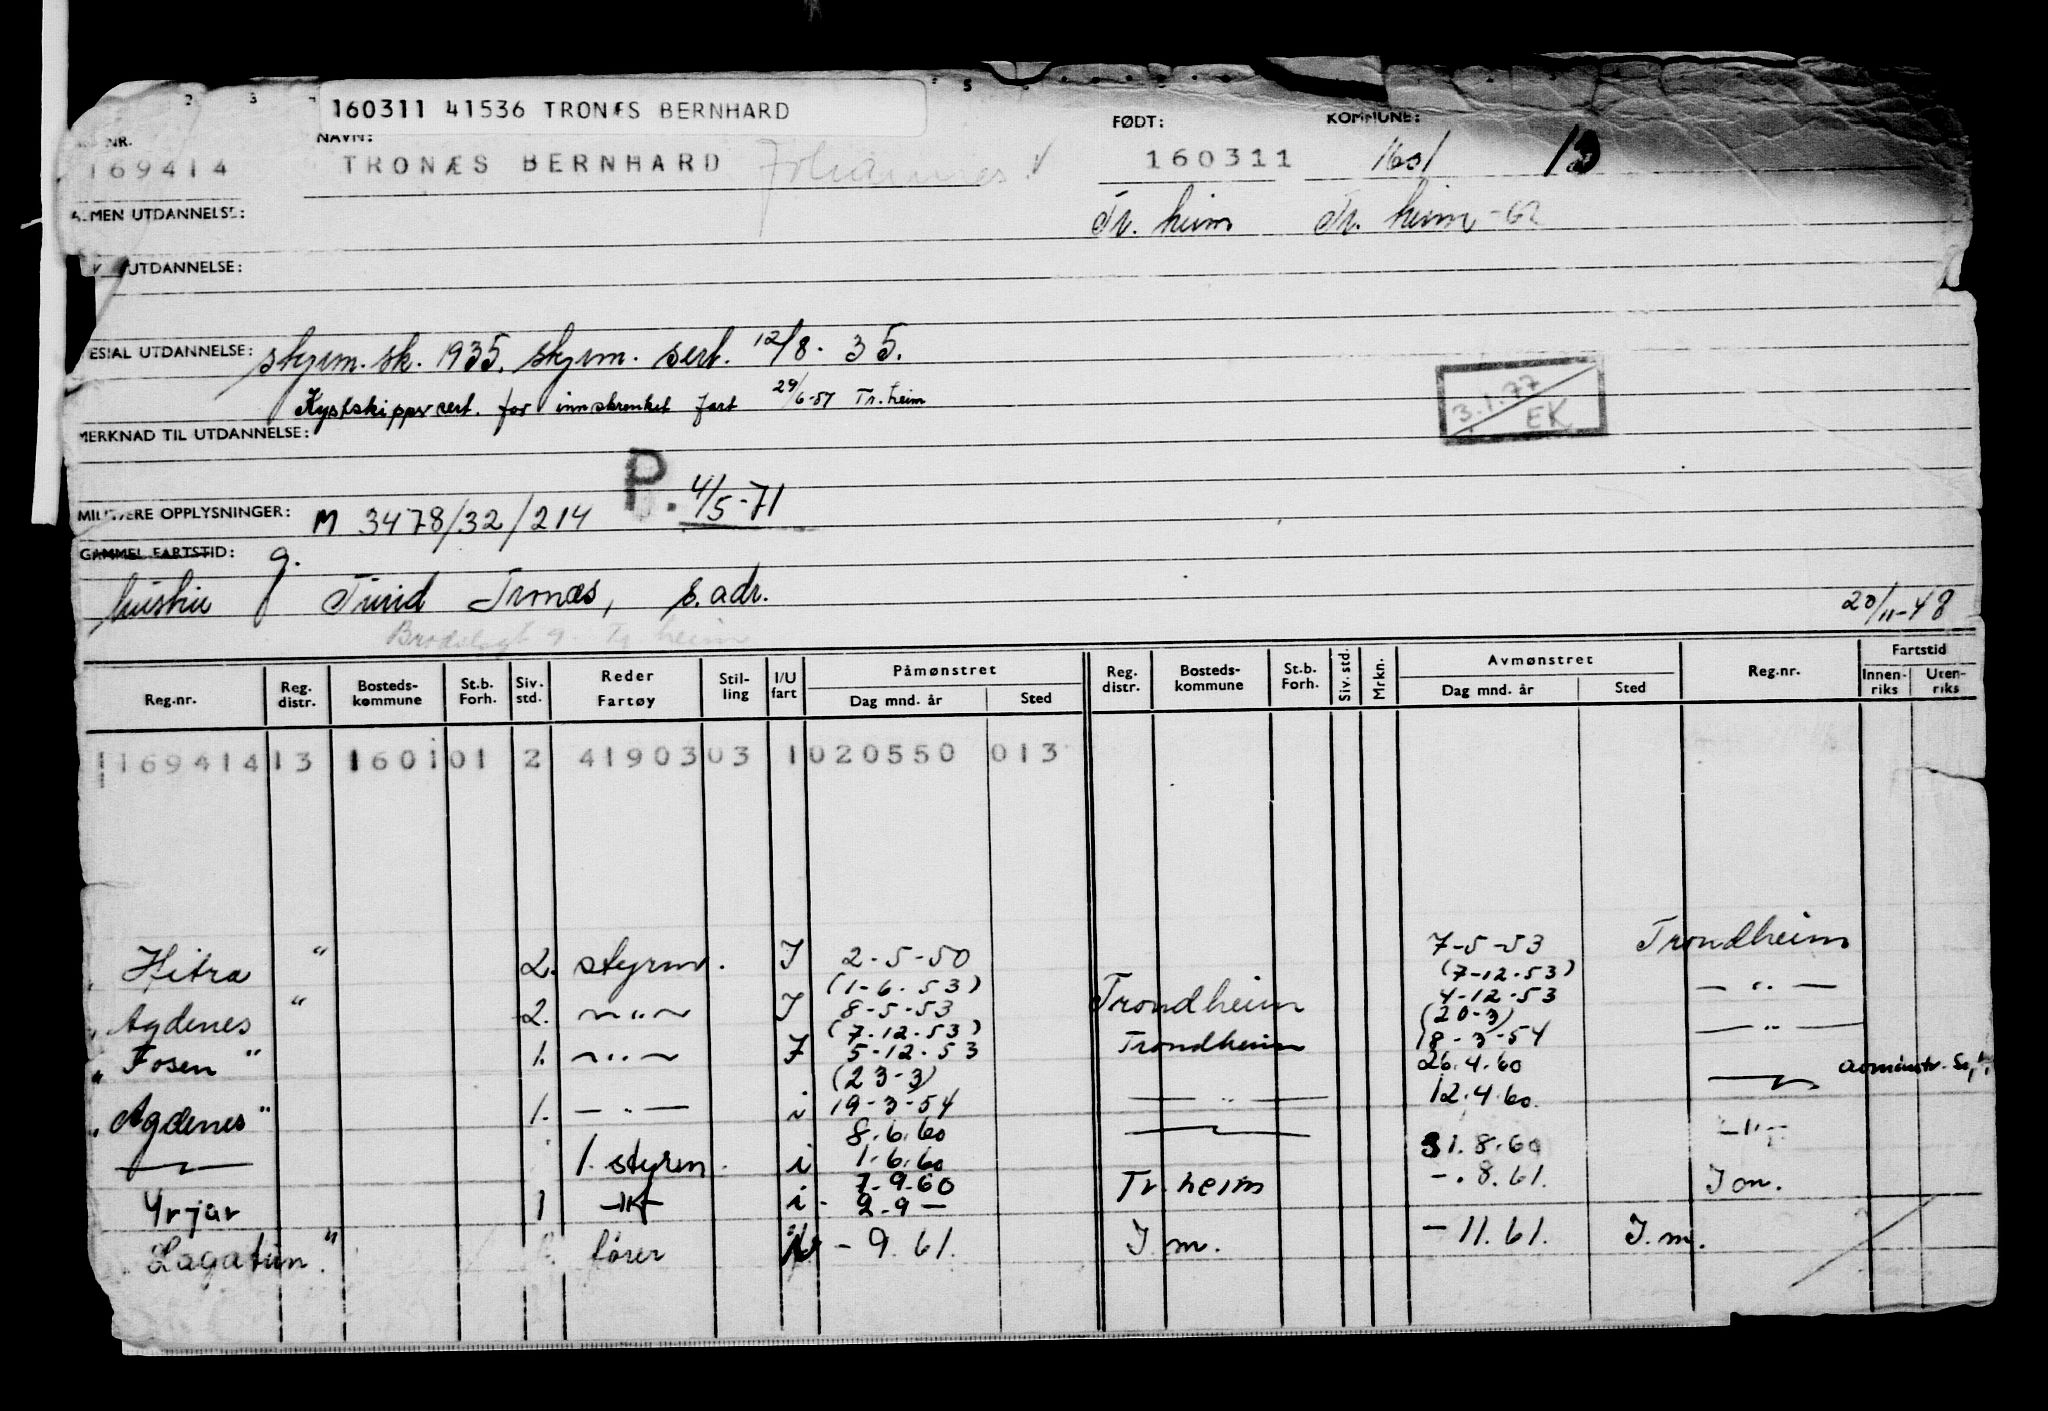 160311 41536 TRONÆS BERNHARD
NR. NAVN: FØDT: KOMMUNE:
169414 TRONÆS BERNHARD Johannes 160311 1601 13
ALMEN UTDANNELSE: Tr. heim Tr. heim -62
UTDANNELSE:
SPESIAL UTDANNELSE: styrm. sk. 1935. skjrm. sert. 12/8. 35.
Kystskipper sert. for innskrenket fart 29/6-51 Tr. heim
3.1.77
EK
MERKNAD TIL UTDANNELSE:
P. 4/5-71
MILITÆRE OPPLYSNINGER: M 3478/32/214
GAMMEL FARTSTID: g.
hustru Turid Tronæs, s. adr. 20/11-48
g. Tr. heim
Reg.nr. Reg. distr. Bosteds- kommune St.b. Forh. Siv. std. Reder Fartøy Stil- ling I/U fart Påmønstret Dag mnd. år Sted Reg. distr. Bosteds- kommune St.b. Forh. Siv. std. Mrkn. Avmønstret Dag mnd. år Sted Reg.nr. Fartstid Innen- riks Uten- riks
169414 13 1601 01 2 41903 03 1 020550 013
" Hitra " 2. styrm. I 2-5-50 7-5-53 Trondheim
(1-6.53) (7-12.53)
" Agdenes " 2. — " — I 8-5-53 Trondheim 4-12-53 — " —
(7.12.53) (20-3)
" Fosen " 1. — " — I 5-12-53 Trondheim 18-3-54 — " —
(23-3) 26.4.60
" Agdenes " 1. — " — i 19-3-54 — " — 12.4.60
8.6.60
1. styrm. i 1.6.60 31.8.60 — " —
7.9.60
Yrjar 1 — " — i 2-9- Tr. heim - . 8.61.
Lagatun " fører - 9. 61. I.m. - 11.61. I.m.